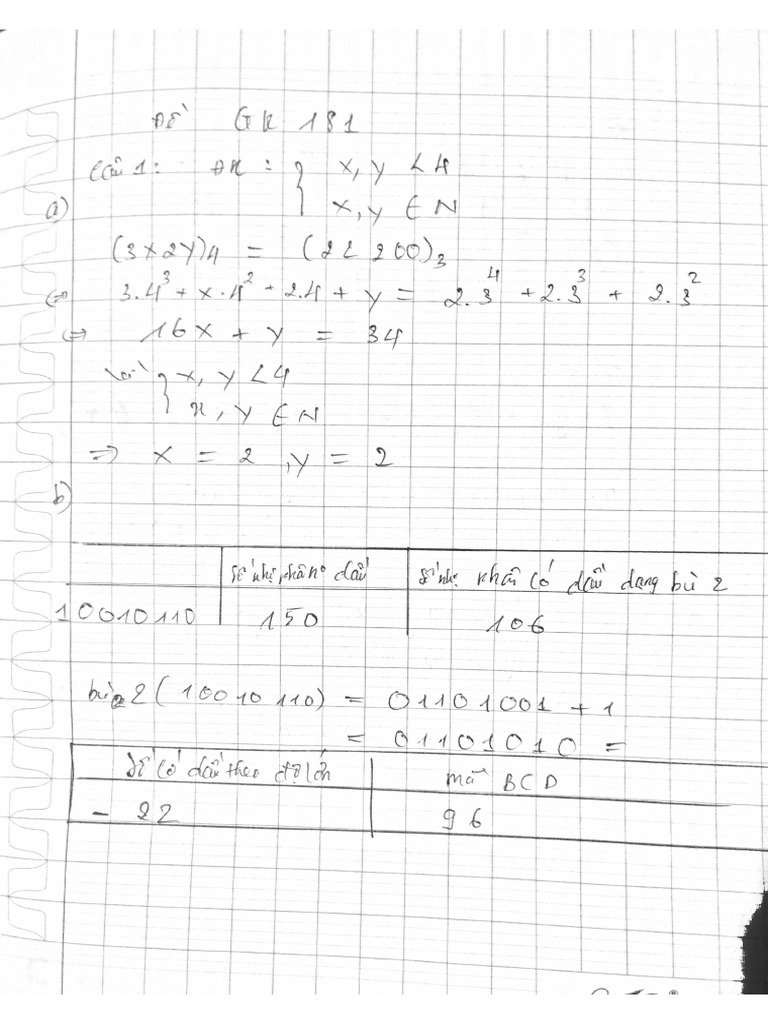 Đề GK 181
Câu 1: ĐK: { x, y < 4
x, y ∈ N
a)
(3x2y)4 = (22200)3
⇔ 3.4^3 + x.4^2 + 2.4 + y = 2.3^4 + 2.3^3 + 2.3^2
⇔ 16x + y = 34
Với { x, y < 4
x, y ∈ N
⇒ x = 2, y = 2
b)
Số nhị phân o dấu Số nhị phân có dấu dạng bù 2
10010110 150 106
bù 2 (10010110) = 01101001 + 1
= 01101010 =
Số có dấu theo độ lớn mã BCD
- 22 96